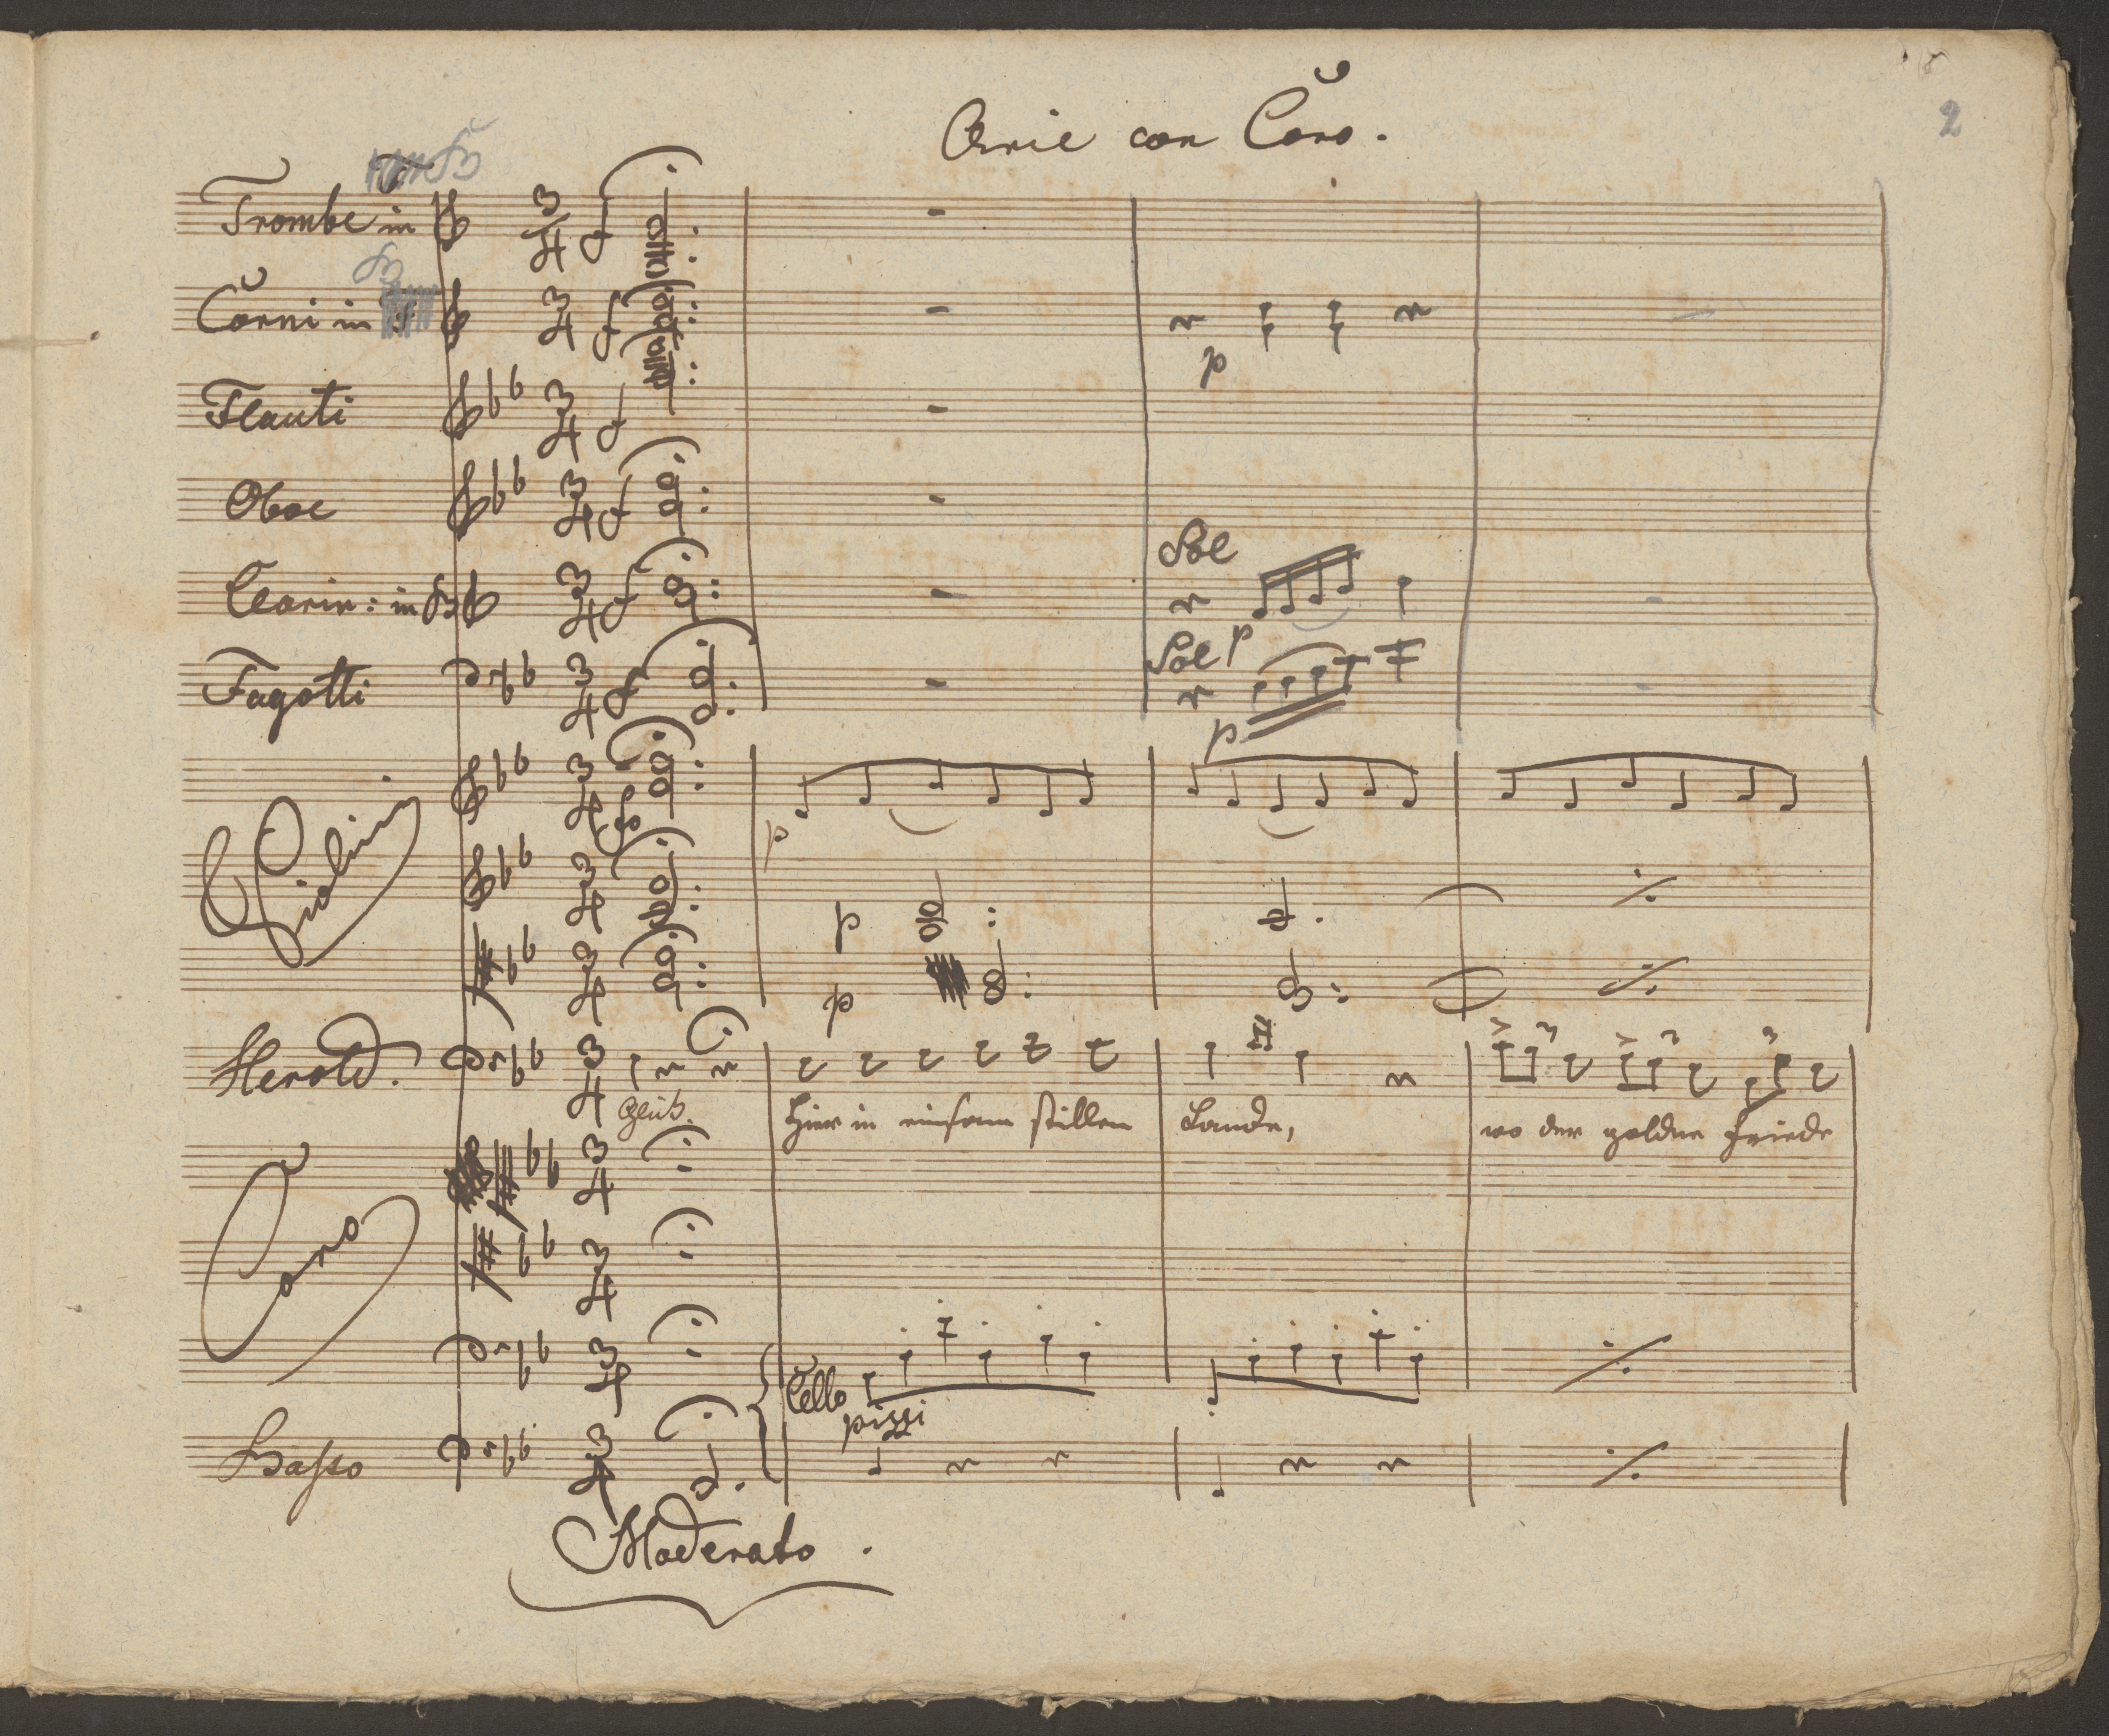 Arie con Coro.
2
Trombe in
B
Corni in
Flauti
Oboe
Clarin: in B
Fagotti
Sol
p
Sol p
p
Violini
p
p
p
Herold.
Glück.
Hier in einsam stillen Lande,
wo der goldne Friede
Coro
Cello
pizzi
Basso
Moderato.